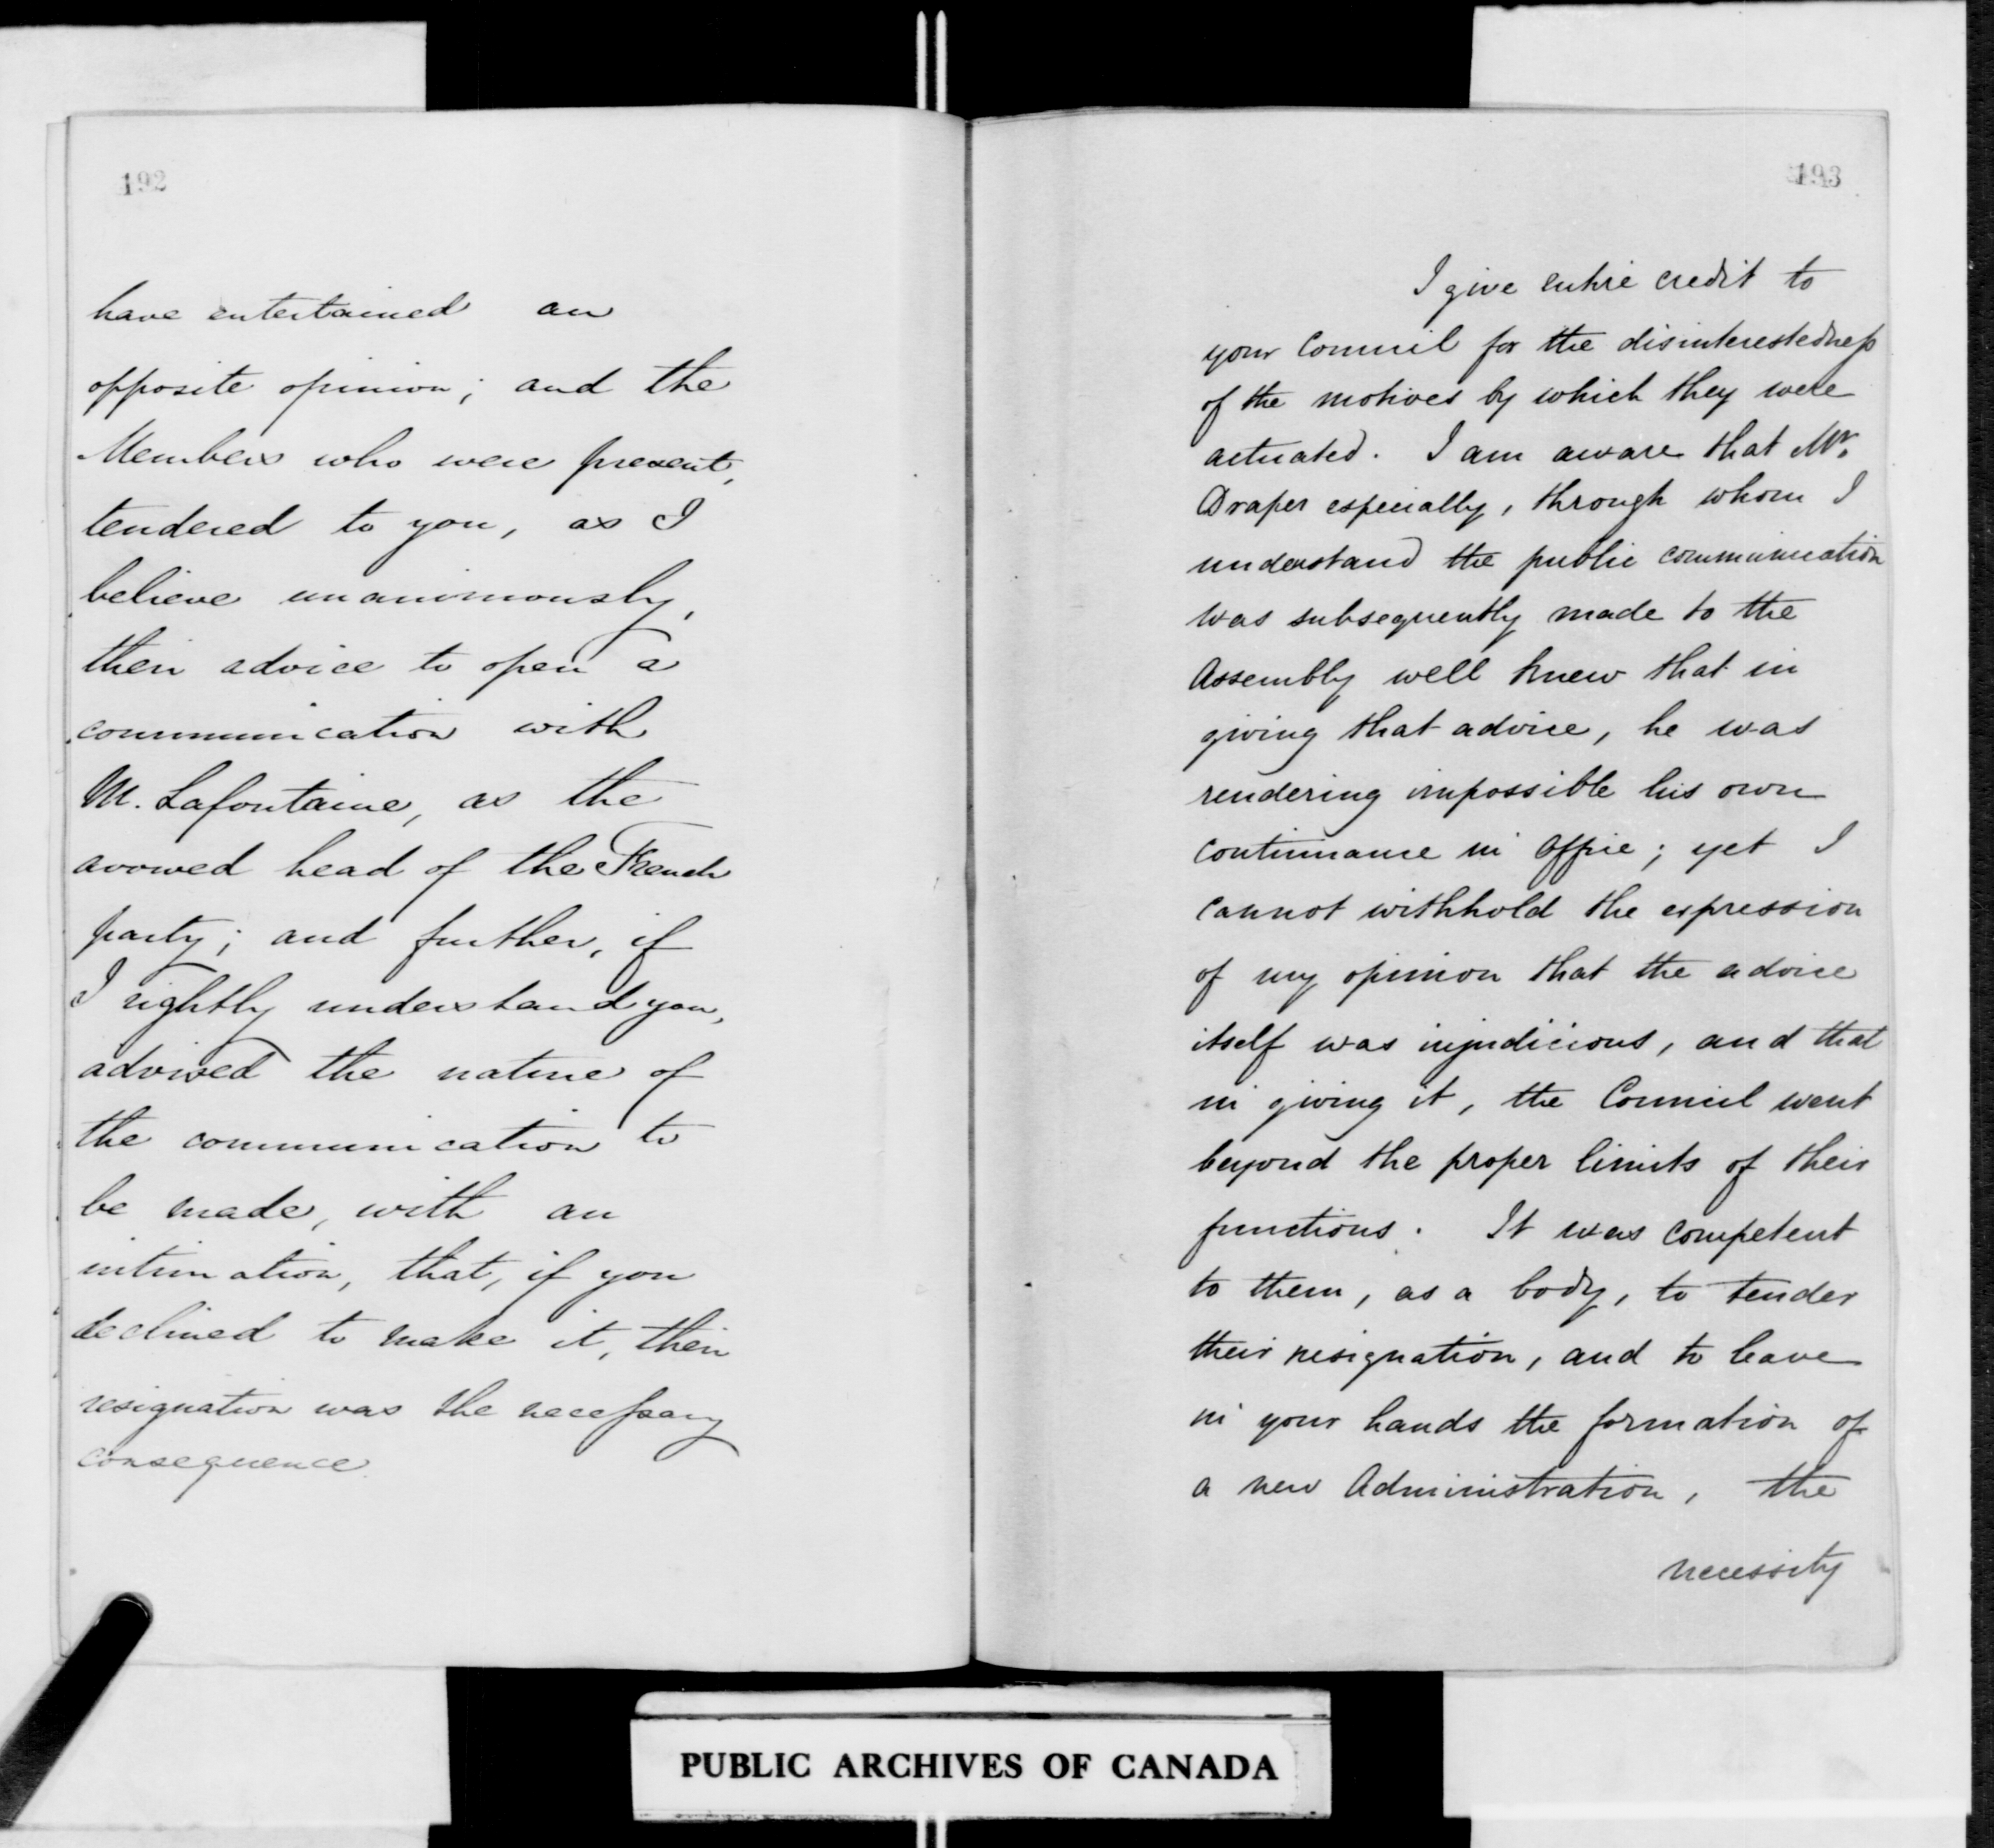 192
have entertained an
opposite opinion; and the
Members who were present,
tendered to you, as I
believe unanimously,
their advice to open a
communication with
M. Lafontaine, as the
avowed head of the French
party; and further, if
I rightly understand you,
advised the nature of
the communication to
be made, with an
intimation, that, if you
declined to make it, their
resignation was the necessary
consequence.
193
I give entire credit to
your Council for the disinterestedness
of the motives by which they were
actuated. I am aware that Mr.
Draper especially, through whom I
understand the public communication
was subsequently made to the
Assembly well knew that in
giving that advice, he was
rendering impossible his own
continuance in office; yet I
cannot withhold the expression
of my opinion that the advice
itself was injudicious, and that
in giving it, the Council went
beyond the proper limits of their
functions. It was competent
to them, as a body, to tender
their resignation, and to leave
in your hands the formation of
a new Administration, the
necessity
PUBLIC ARCHIVES OF CANADA